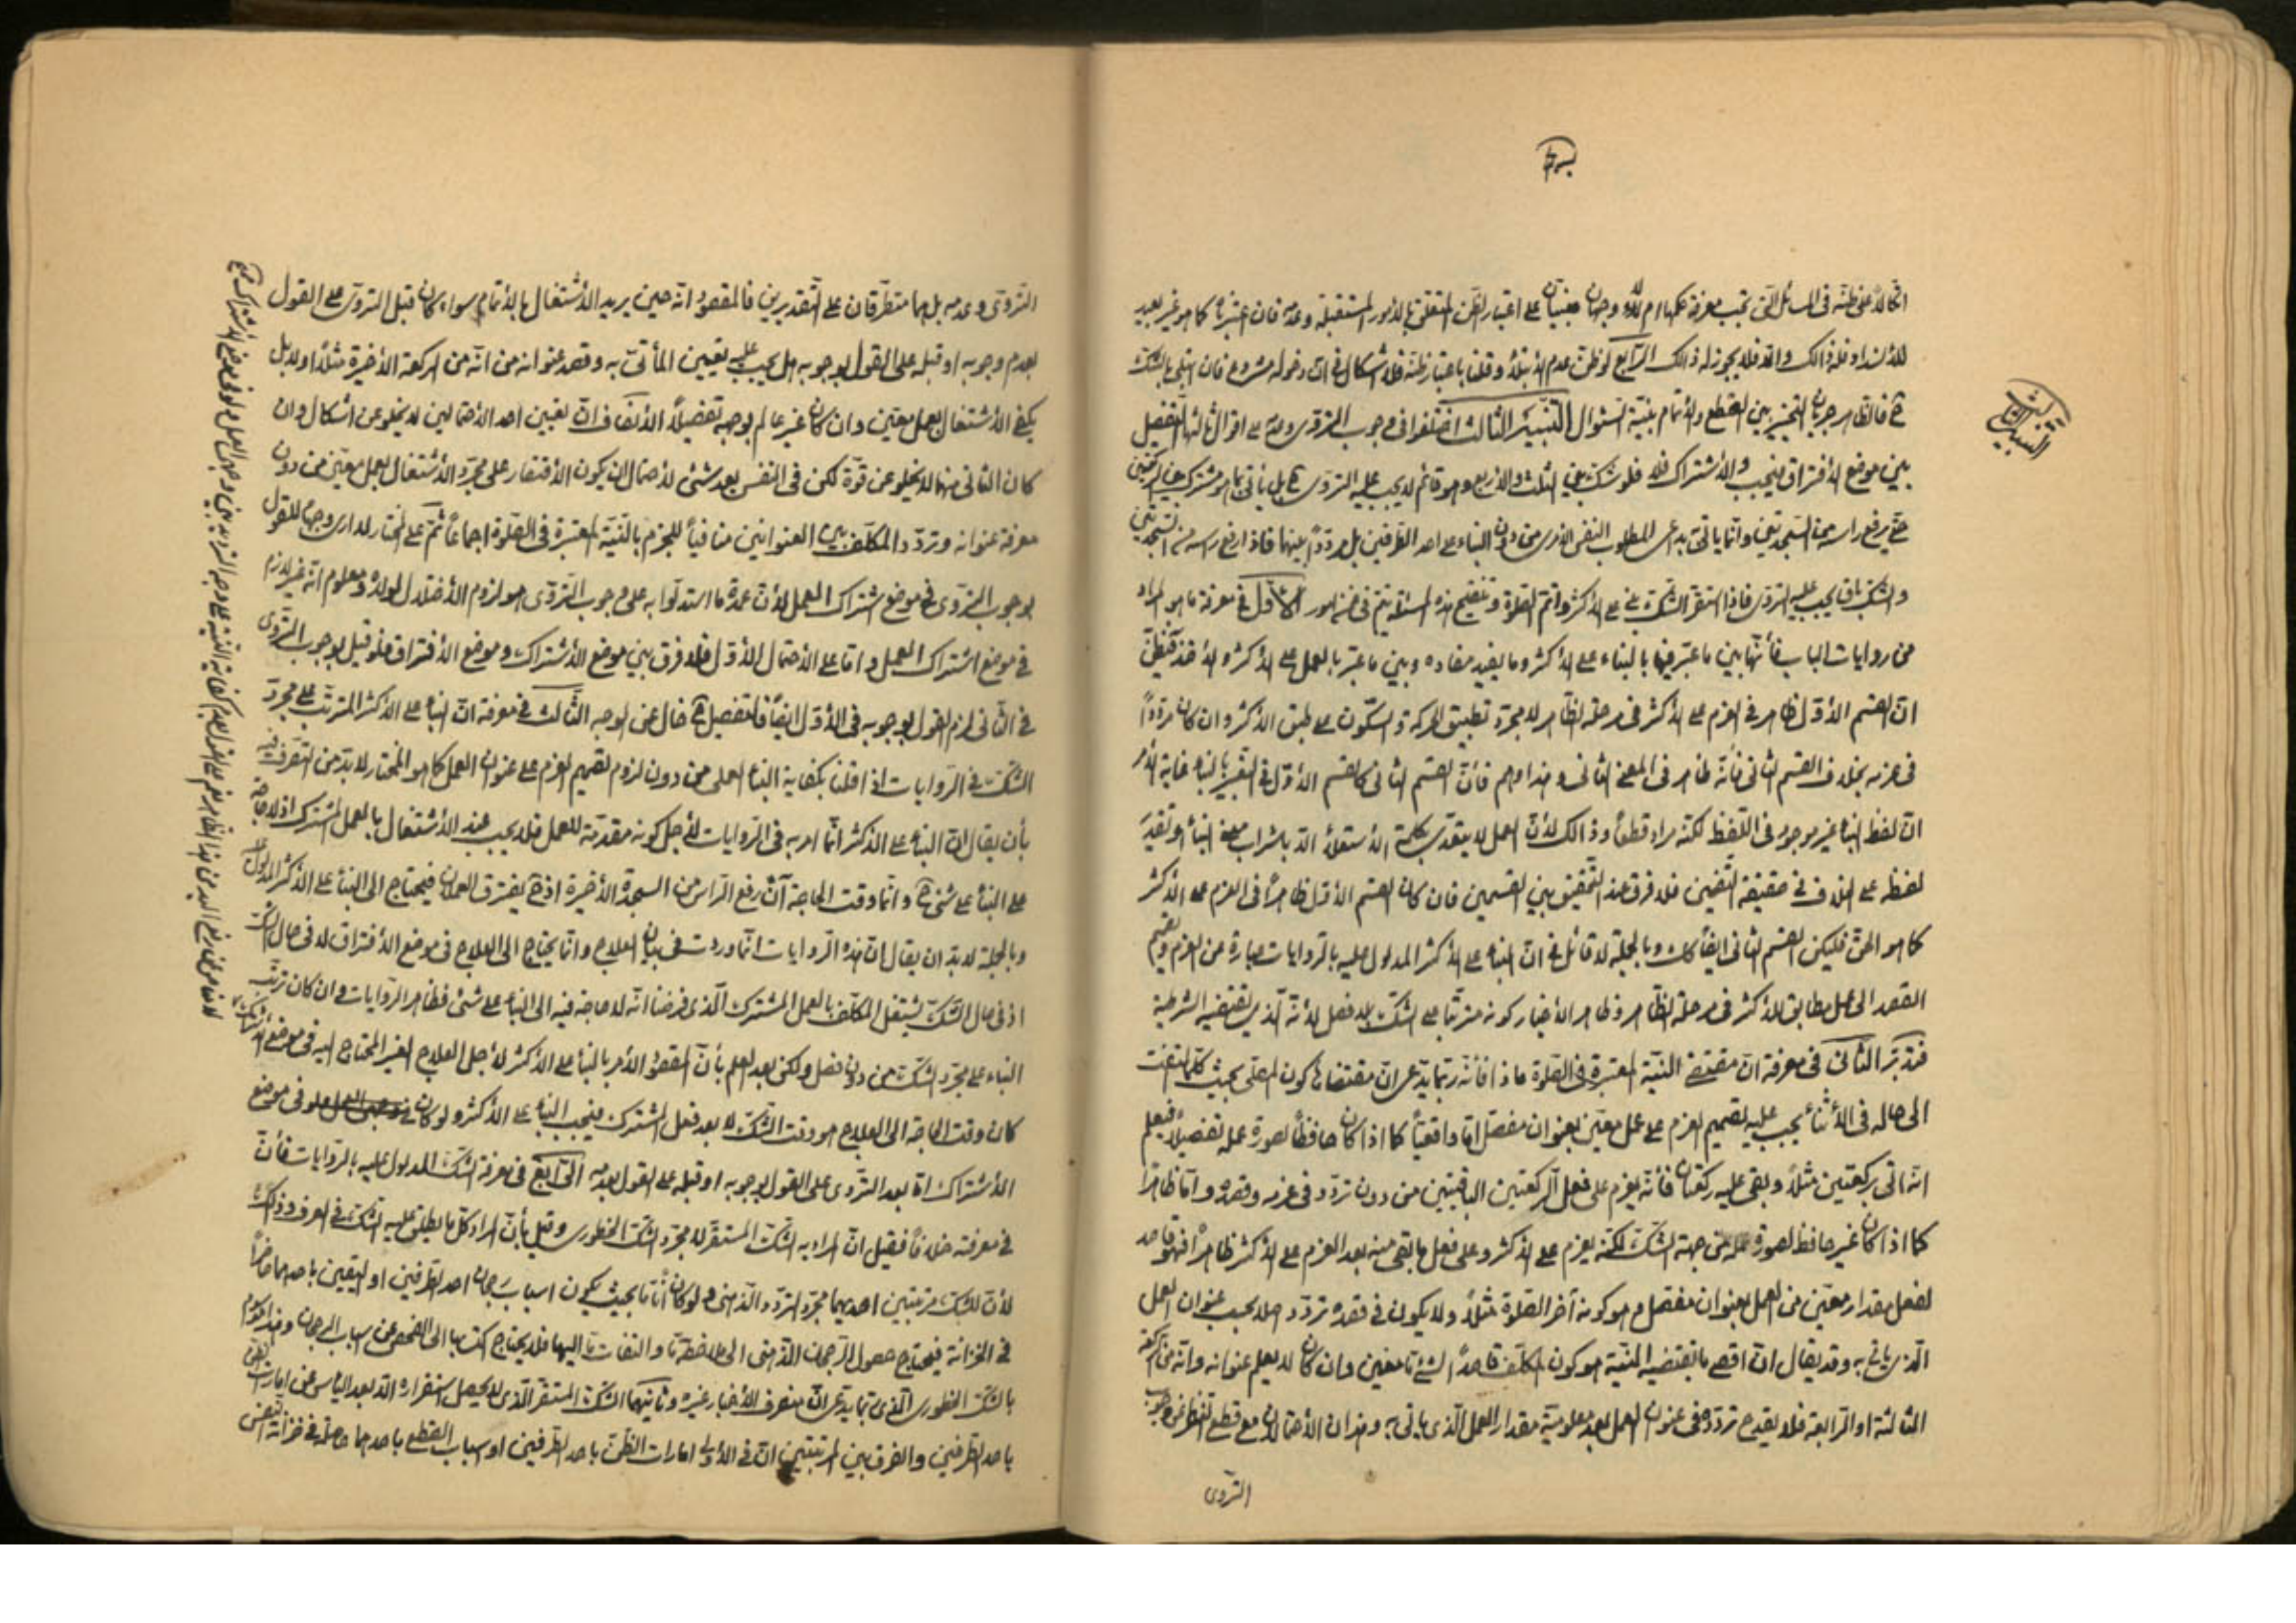 اتكالا على ظنه فى المسائل التى تجب معرفة حكمها ام لا وجهان مبنيان على اعتبار الظن المتعلق بالامور المستقبلة وعدمه فان اعتبرناه كما هو غير بعيد
فله ذالك والا فلا يجوز له ذالك الرابع لو ظن عدم الابتلاء وقلنا باعتبار ظنه فلا اشكال فى ان دخوله مشروع فان ابتلى بالشك
ح فالظاهر جريان التخيير بين القطع والاتمام بنية السئوال التنبيه الثالث اختلفوا فى وجوب التروى وعدمه على اقوال ثالثها التفصيل
بين موضع الافتراق فيجب والاشتراك فلا فلو شك بين الثلث والاربع وهو قائم لا يجب عليه التروى ح بل يأتى بما هو مشترك بين الركعتين
حتى يرفع راسه من السجدتين وانما ياتى به على المطلوب النفس الامرى من دون البناء على احد الطرفين بل مرددا بينهما فاذا رفع راسه من السجدتين
والشك باق يجب عليه التروى فاذا استقر الشك بنى على الاكثر واتم الصلوة وتنقيح هذه المسئلة يتم فى ضمن امور الاول فى معرفة ما هو المراد
من روايات الباب فأنها بين ما عبر فيها بالبناء على الاكثر وما يفيد مفاده وبين ما عبر بالعمل على الاكثر والاخذ فنظن
ان القسم الاول ظاهر فى العزم على الاكثر فى مرحلة الظاهر لا مجرد تطبيق الحركة والسكون على طبق الاكثر وان كان مرددا
فى عزمه بخلاف القسم الثانى فأنه ظاهر فى المعنى الثانى وهذا وهم فأن القسم الثانى كالقسم الاول فى التعبير بالبناء غاية الامر
ان لفظ البناء غير موجود فى اللفظ لكنه مراد قطعا وذالك لأن العمل لا يتعدى بكلمة الاستعلاء الا باشراب معنى البناء وتقدير
لفظه على الخلاف فى حقيقة التضمين فلا فرق عند التحقيق بين القسمين فان كان القسم الاول ظاهرا فى العزم على الاكثر
كما هو الحق فليكن القسم الثانى ايضا كك وبالجملة لا تأمل فى ان البناء على الاكثر المدلول عليه بالروايات عبارة عن العزم وتصميم
القصد الى عمل مطابق للاكثر فى مرحلة الظاهر وظاهر الأخبار كونه مترتبا على الشك بلا فصل لأنه الذى يقتضيه الشرطية
فتدبر الثانى فى معرفة ان مقتضى النية المعتبرة فى الصلوة ماذا فأنه ربما يدعى ان مقتضاها كون المصلى بحيث كلما التفت
الى حاله فى الأثناء يجب عليه تصميم العزم على عمل معين بعنوان مفصل اما واقعيا كما اذا كان حافظا لصورة عمله تفصيلا فيعلم
انه اتى بركعتين مثلا وبقى عليه ركعتان فأنه يعزم على فعل الركعتين الباقيتين من دون تردد فى عزمه وقصده واما ظاهرا
كما اذا كان غير حافظ لصورة عمله من جهة الشك لكنه يعزم على الاكثر وعلى فعل ما بقى منه بعد العزم على الاكثر ظاهرا فهو قاصد
لفعل مقدار معين من العمل بعنوان مفصل وهو كونه آخر الصلوة مثلا ولا يكون فى قصده تردد اصلا بحسب عنوان العمل
الذى يأتى به وقد يقال ان اقصى ما يقتضيه النية هو كون المكلف قاصدا الشئ معين وان كان لا يعلم عنوانه وانه من الركعة
الثالثة او الرابعة فلا يقدح تردده فى عنوان العمل بعد معلومية مقدار العمل الذى ياتى به وهذان الأحتمالان مع قطع النظر عن وجوب
التروى
التروى وعدمه بل هما متطرقان على التقديرين فالمقصود انه حين يريد الأشتغال بالأتمام سواء كان قبل التروى على القول
بعدم وجوبه او قبله على القول بوجوبه هل يجب عليه تعيين المأتى به وقصد عنوانه من انه من الركعة الأخيرة مثلا او لا بل
يكفى الأشتغال بعمل معين وان كان غير عالم بوجهه تفصيلا الأنصاف ان تعيين احد الأحتمالين لا يخلو عن اشكال وان
كان الثانى منهما لا يخلو عن قوة لكن فى النفس بعد شئ لأحتمال ان يكون الأقتصار على مجرد الأشتغال بعمل معين من دون
معرفة عنوانه وتردد المكلف بين العنوانين منافيا للجزم بالنية المعتبرة فى الصلوة اجماعا ثم على المختار لا ارى وجها للقول
بوجوب التروى فى موضع اشتراك العمل لأن عمدة ما استدلوا به على وجوب التروى هو لزوم الأختلال لولاه ومعلوم انه غير لازم
فى موضع اشتراك العمل واما على الاحتمال الأول فلا فرق بين موضع الأشتراك وموضع الأفتراق فلو قيل بوجوب التروى
فى الثانى لزم القول بوجوبه فى الأول ايضا فالتفصيل ح خال عن الوجه الثالث فى معرفة ان البناء على الأكثر المترتب على مجرد
الشك فى الروايات اذا قلنا بكفاية البناء العملى من دون لزوم تصميم العزم على عنوان العمل كما هو المختار لا بد من التصرف فيه
بأن يقال ان البناء على الاكثر انما امر به فى الروايات لأجل كونه مقدمة للعمل فلا يجب عند الأشتغال بالعمل المشترك اذ لا حاجة
على البناء على شئ ح وانما وقت الحاجة آن رفع الراس من السجدة الأخيرة اذ ح يفترق العملان فيحتاج الى البناء على الاكثر المدلول عليه
وبالجملة لا بد ان يقال ان هذه الروايات انما وردت فى بيان العلاج وانما يحتاج الى العلاج فى موضع الأفتراق لا فى حال الشك
اذ فى حال الشك يشتغل المكلف بالعمل المشترك الذى فرضنا انه لا حاجة فيه الى البناء على شئ فظاهر الروايات وان كان ترتب
البناء على مجرد الشك من دون فصل ولكن بعد العلم بأن المقصود الأمر بالبناء على الأكثر لأجل العلاج الغير المحتاج اليه فى موضع الاشتراك
كان وقت الحاجة الى العلاج هو وقت الشك لا بعد فعل المشترك فيجب البناء على الاكثر ولو كان فى موضع
الأشتراك اما بعد التروى على القول بوجوبه او قبله على القول بعدمه الرابع فى معرفة الشك المدلول عليه بالروايات فأن
فى معرفته خلافا فقيل ان المراد به الشك المستقر لا مجرد الشك الخطورى وقيل بأن المراد كل ما يطلق عليه الشك فى العرف وذالك
لأن للشك مرتبتين احديهما مجرد التردد الذهنى ولو كان آنا ما بحيث يكون اسباب رجحان احد الطرفين او اليقين باحدهما حاضرا
فى الخزانة فيحتاج حصول الرجحان الذهنى الى ملاحظة ما والتفات ما اليها فلا يحتاج الى الفحص عن اسباب الرجحان وهذا هو
بالشك الخطورى الذى ربما يدعى ان منصرف الأخبار غيره وثانيتهما الشك المستقر الذى لا يحصل استقراره الا بعد الياس عن امارات الظن
باحد الطرفين والفرق بين المرتبتين ان فى الأولى امارات الظن باحد الطرفين او اسباب القطع باحدهما حاصلة فى خزانة النفس